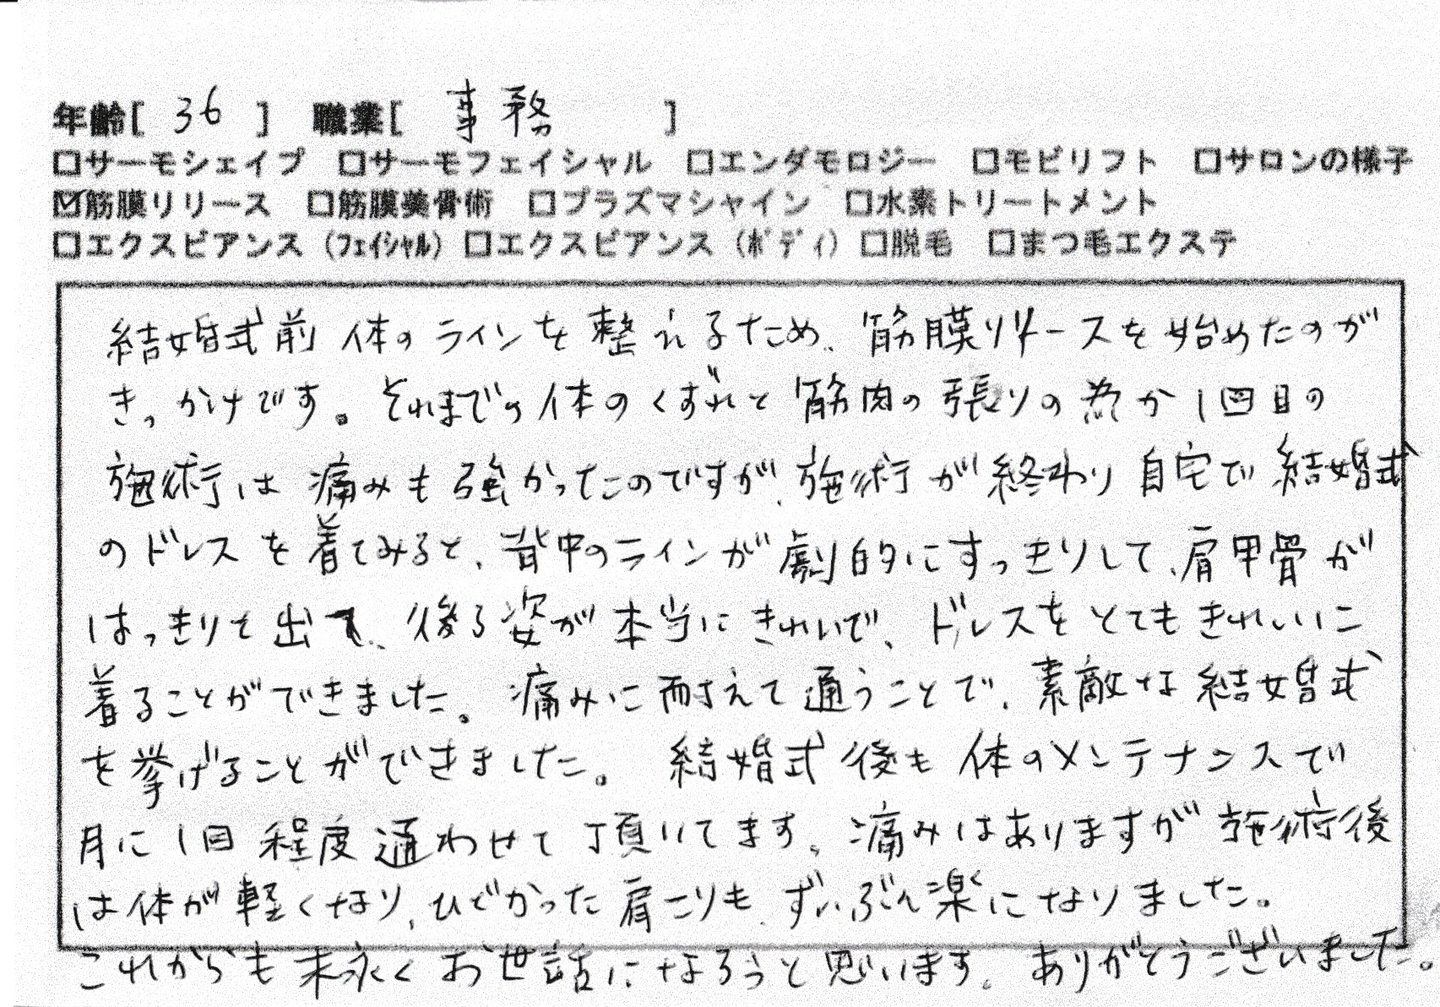 年齢[ 36 ] 職業[ 事務 ]
□サーモシェイプ □サーモフェイシャル □エンダモロジー □モビリフト □サロンの様子
☑筋膜リリース □筋膜美骨術 □プラズマシャイン □水素トリートメント
□エクスビアンス（フェイシャル） □エクスビアンス（ボディ） □脱毛 □まつ毛エクステ
結婚式前 体のラインを整えるため、筋膜リリースを始めたのが
きっかけです。それまでの体のくずれと筋肉の張りの為か1回目の
施術は痛みも強かったのですが、施術が終わり自宅で結婚式
のドレスを着てみると、背中のラインが劇的にすっきりして、肩甲骨が
はっきりと出て、後ろ姿が本当にきれいで、ドレスをとてもきれいに
着ることができました。痛みに耐えて通うことで、素敵な結婚式
を挙げることができました。結婚式後も体のメンテナンスで
月に1回程度通わせて頂いてます。痛みはありますが施術後
は体が軽くなり、ひどかった肩こりも、ずいぶん楽になりました。
これからも末永くお世話になろうと思います。ありがとうございました。